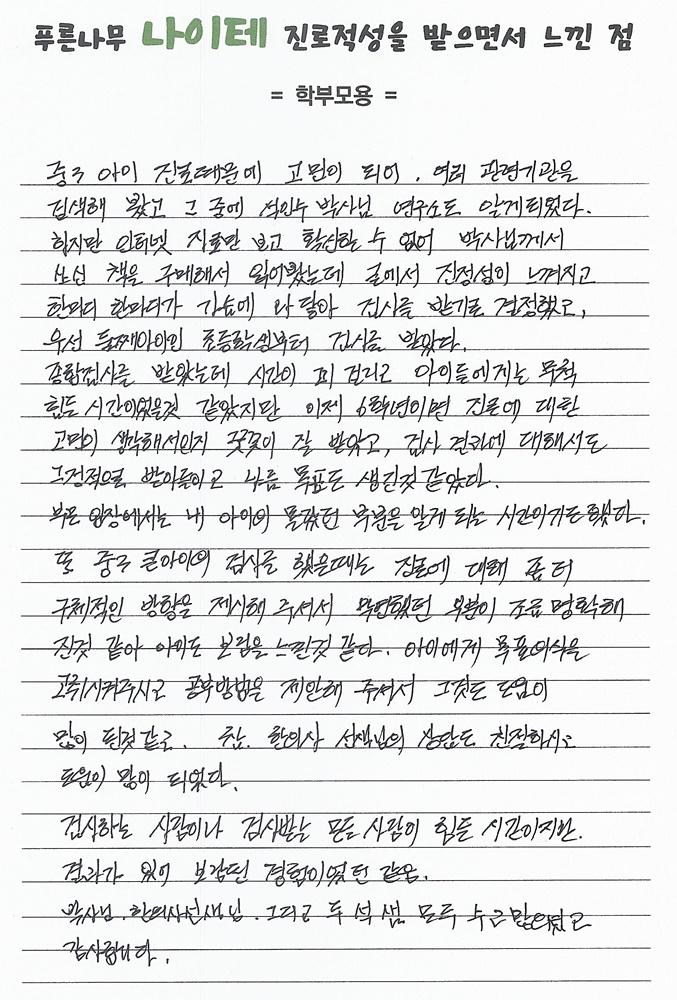 푸른나무 나이테 진로적성을 받으면서 느낀 점
= 학부모용 =
중3 아이 진로때문에 고민이 되어, 여러 관련기관을
검색해 봤고 그 중에 석인수 박사님 연구소도 알게되었다.
하지만 인터넷 자료만 보고 확신할 수 없어 박사님께서
쓰신 책을 구매해서 읽어봤는데 글에서 진정성이 느껴지고
한마디 한마디가 가슴에 와 닿아 검사를 받기로 결정했고,
우선 둘째아이인 초등학생부터 검사를 받았다.
종합검사를 받았는데 시간이 꽤 걸리고 아이들에게는 무척
힘든 시간이었을것 같았지만 이제 6학년이면 진로에 대한
고민이 생각해서인지 꿋꿋이 잘 받았고, 검사 결과에 대해서도
긍정적으로 받아들이고 나름 목표도 생긴것 같았다.
부모 입장에서는 내 아이의 몰랐던 부분을 알게 되는 시간이기도 했다.
또 중3 큰아이의 검사를 했을때는 진로에 대해 좀 더
구체적인 방향을 제시해 주셔서 막연했던 부분이 조금 명확해
진것 같아 아이도 보람을 느낀것 같다. 아이에게 목표의식을
고취시켜주시고 공부방법을 제안해 주셔서 그것도 도움이
많이 된것같고. 참. 한의사 선생님의 상담도 친절하시고
도움이 많이 되었다.
검사하는 사람이나 검사받는 모든 사람이 힘든 시간이지만.
결과가 있어 보람된 경험이었던 같음.
박사님. 한의사선생님. 그리고 두 석샘 모두 수고많으셨고
감사합니다.